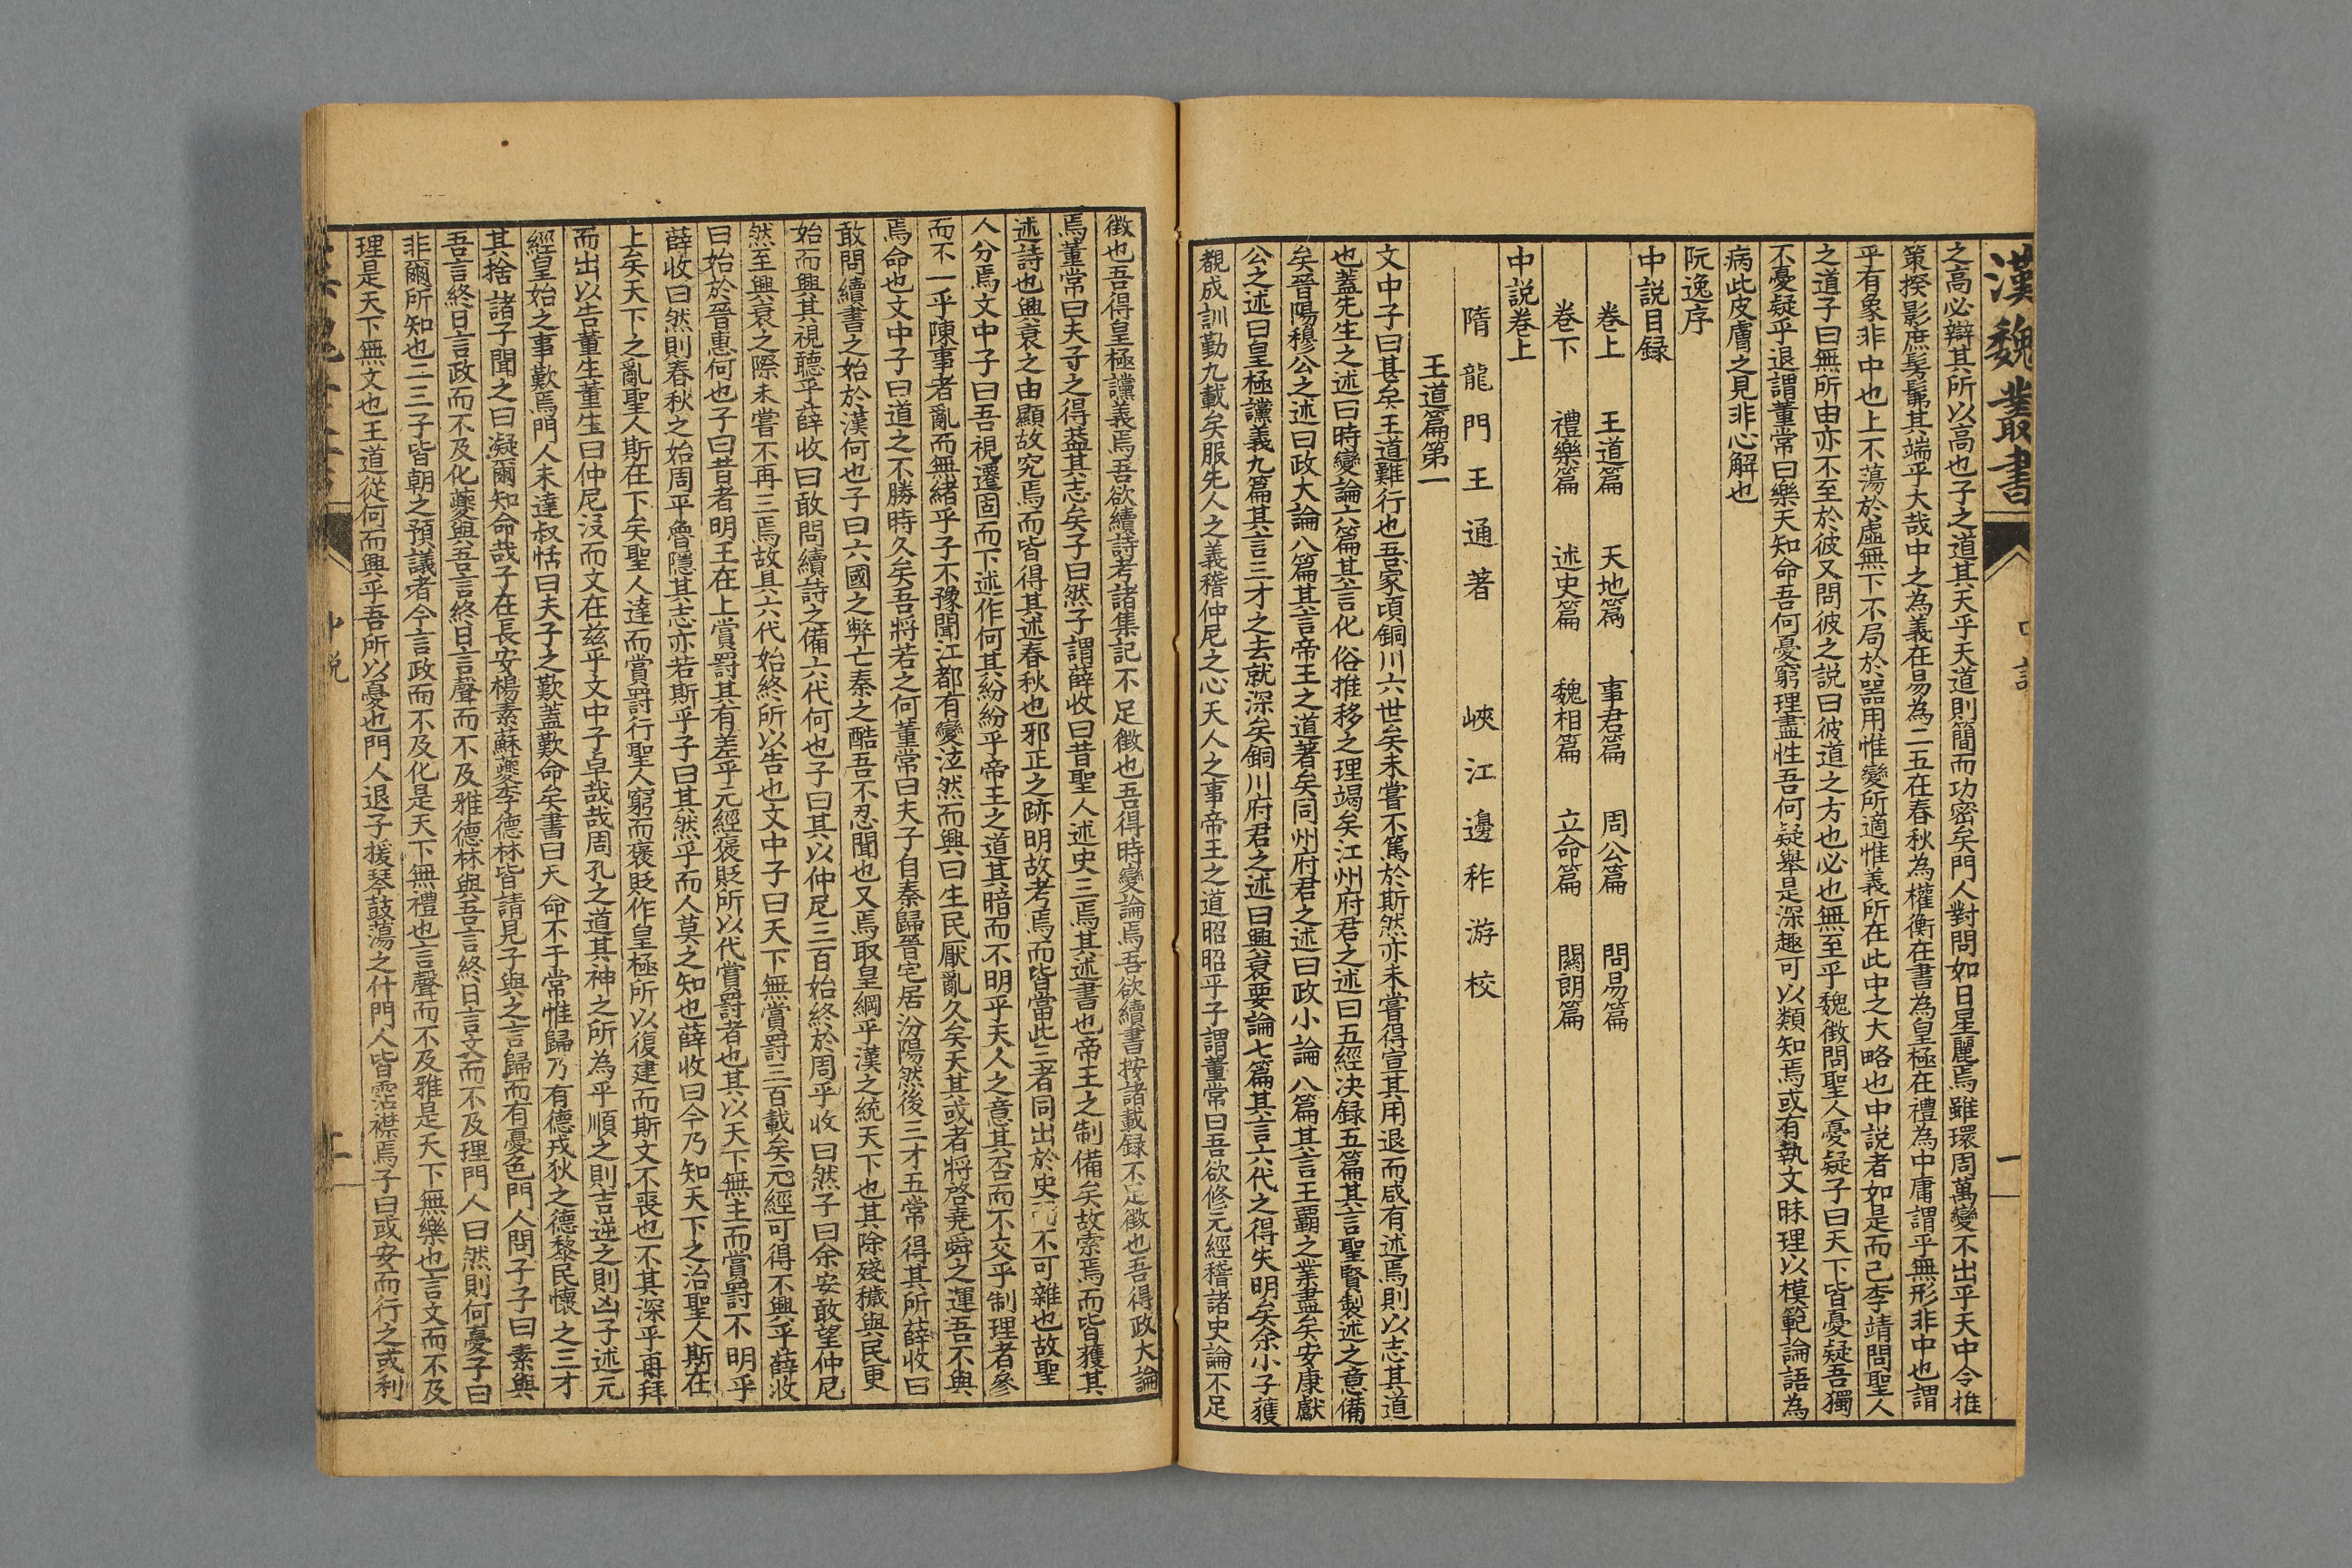 漢魏叢書
中說
一
之高必辯其所以高也子之道其天乎天道則簡而功密矣門人對問如日星麗焉雖環周萬變不出乎天中今推
策揆影庶髣髴其端乎大哉中之為義在易為二五在春秋為權衡在書為皇極在禮為中庸謂乎無形非中也謂
乎有象非中也上不蕩於虛無下不局於器用惟變所適惟義所在此中之大略也中說者如是而已李靖問聖人
之道子曰無所由亦不至於彼又問彼之說曰彼道之方也必也無至乎魏徵問聖人憂疑子曰天下皆憂疑吾獨
不憂疑乎退謂董常曰樂天知命吾何憂窮理盡性吾何疑舉是深趣可以類知焉或有執文昧理以模範論語為
病此皮膚之見非心解也
阮逸序
中說目録
卷上 王道篇 天地篇 事君篇 周公篇 問易篇
卷下 禮樂篇 述史篇 魏相篇 立命篇 關朗篇
中說卷上
隋龍門王通著 峽江邊秨游校
王道篇第一
文中子曰甚矣王道難行也吾家頃銅川六世矣未嘗不篤於斯然亦未嘗得宣其用退而咸有述焉則以志其道
也蓋先生之述曰時變論六篇其言化俗推移之理竭矣江州府君之述曰五經決録五篇其言聖賢製述之意備
矣晉陽穆公之述曰政大論八篇其言帝王之道著矣同州府君之述曰政小論八篇其言王霸之業盡矣安康獻
公之述曰皇極讜義九篇其言三才之去就深矣銅川府君之述曰興衰要論七篇其言六代之得失明矣余小子獲
覩成訓勤九載矣服先人之義稽仲尼之心天人之事帝王之道昭昭乎子謂董常曰吾欲修元經稽諸史論不足
徵也吾得皇極讜義焉吾欲續詩考諸集記不足徵也吾得時變論焉吾欲續書按諸載録不足徵也吾得政大論
焉董常曰夫子之得蓋其志矣子曰然子謂薛收曰昔聖人述史三焉其述書也帝王之制備矣故索焉而皆獲其
述詩也興衰之由顯故究焉而皆得其述春秋也邪正之跡明故考焉而皆當此三者同出於史而不可雜也故聖
人分焉文中子曰吾視遷固而下述作何其紛紛乎帝王之道其暗而不明乎天人之意其否而不交乎制理者參
而不一乎陳事者亂而無緒乎子不豫聞江都有變泫然而興曰生民厭亂久矣天其或者將啓堯舜之運吾不與
焉命也文中子曰道之不勝時久矣吾將若之何董常曰夫子自秦歸晉宅居汾陽然後三才五常得其所薛收曰
敢問續書之始於漢何也子曰六國之弊亡秦之酷吾不忍聞也又焉取皇綱乎漢之統天下也其除殘穢與民更
始而興其視聽乎薛收曰敢問續詩之備六代何也子曰其以仲尼三百始終於周乎收曰然子曰余安敢望仲尼
然至興衰之際未嘗不再三焉故具六代始終所以告也文中子曰天下無賞罰三百載矣元經可得不興乎薛收
曰始於晉惠何也子曰昔者明王在上賞罰其有差乎元經褒貶所以代賞罰者也其以天下無主而賞罰不明乎
薛收曰然則春秋之始周平魯隱其志亦若斯乎子曰其然乎而人莫之知也薛收曰今乃知天下之治聖人斯在
上矣天下之亂聖人斯在下矣聖人達而賞罰行聖人窮而褒貶作皇極所以復建而斯文不喪也不其深乎再拜
而出以告董生董生曰仲尼沒而文在茲乎文中子卓哉哉周孔之道其神之所為乎順之則吉逆之則凶子述元
經皇始之事歎焉門人未達叔恬曰夫子之歎蓋歎命矣書曰天命不于常惟歸乃有德戎狄之德黎民懷之三才
其捨諸子聞之曰凝爾知命哉子在長安楊素蘇夔李德林皆請見子與之言歸而有憂色門人問子子曰素與
吾言終日言政而不及化夔與吾言終日言聲而不及雅德林與吾言終日言文而不及理門人曰然則何憂子曰
非爾所知也二三子皆朝之預議者今言政而不及化是天下無禮也言聲而不及雅是天下無樂也言文而不及
理是天下無文也王道從何而興乎吾所以憂也門人退子援琴鼓蕩之什門人皆霑襟焉子曰或安而行之或利
中說
二